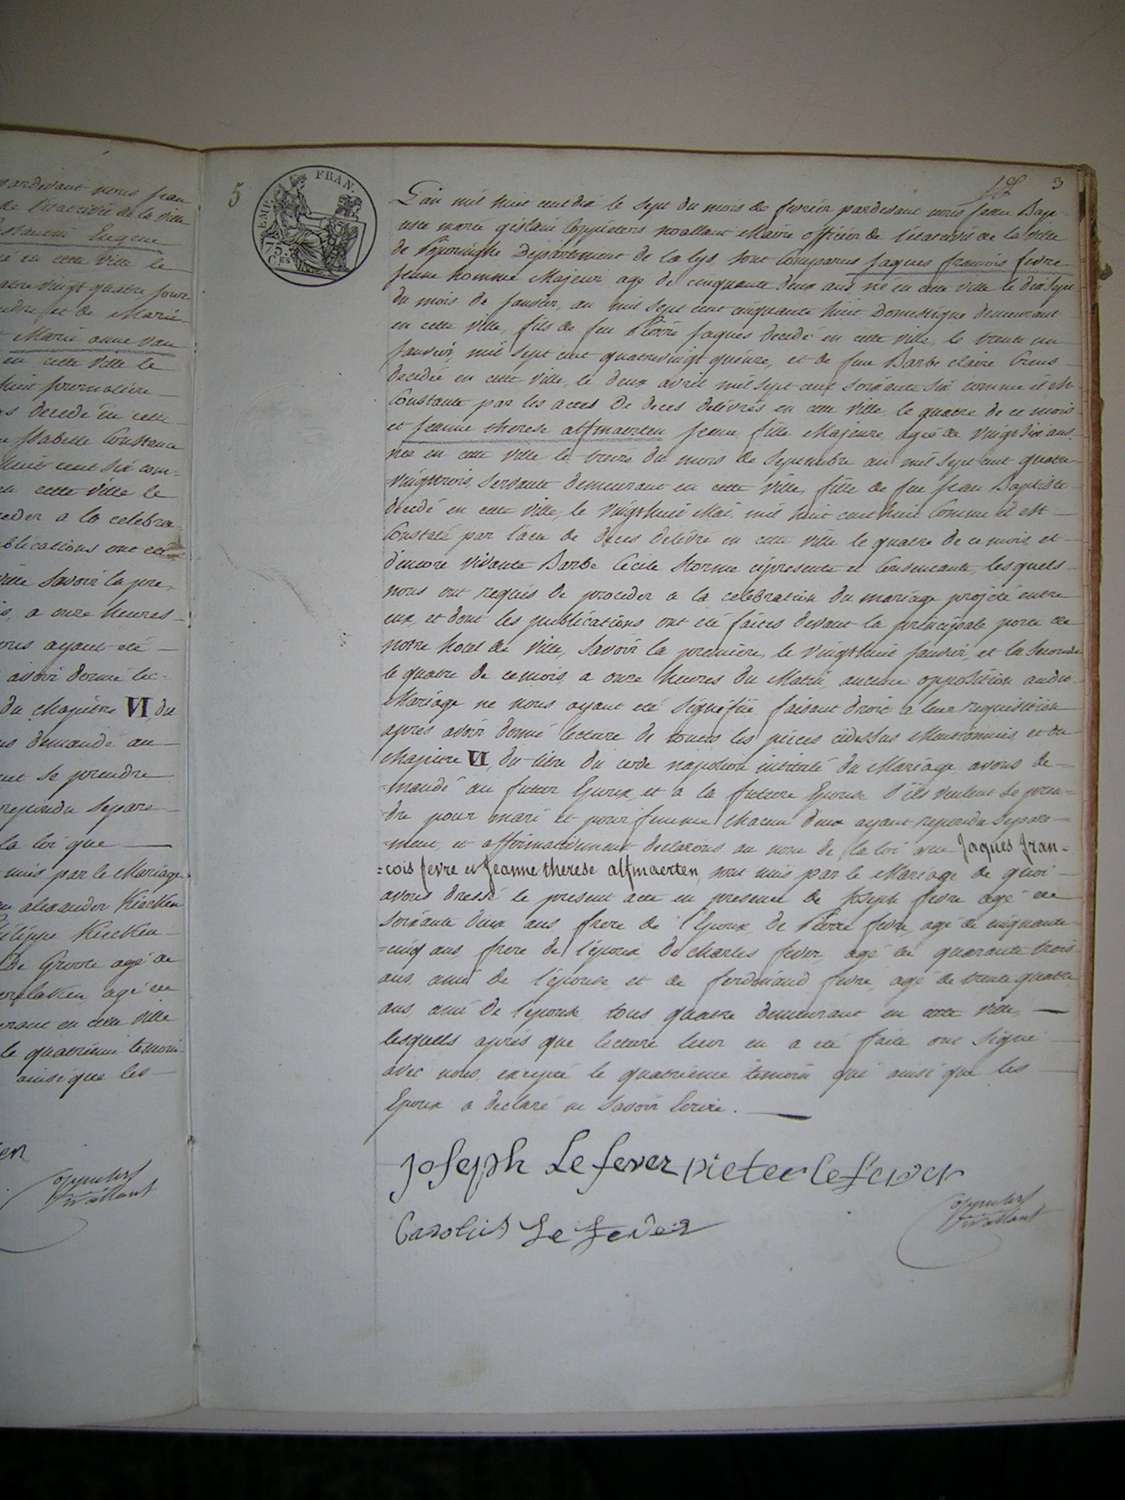 5
EMP. FRAN.
3
L'an mil huit cent dix le sept du mois de fevrier pardevant nous Jean Bap-
tiste marie gislain Coppieters wallant Maire officier de l'etat civil de la ville
de Département de la lys sont comparus Jaques francois fevre
Jeune homme Majeur agé de cinquante deux ans né en cette ville le dix sept
du mois de Janvier, an mil sept cent cinquante huit Domestique demeurant
en cette ville, fils de feu Pierre Jaques decedé en cette ville, le trente un
Janvier, mil sept cent quatrevingt quinze, et de feue Barbe claire
decedée en cette ville, le deux avril mil sept cent soixante six comme il est
Constaté par les actes de deces delivrés en cette ville le quatre de ce mois
et Jeanne therese alfmaerten Jeune fille Majeure agée de vingt six ans
née en cette ville le treize du mois de Septembre an mil sept cent quatre
vingt trois servante demeurant en cette ville, fille de feu Jean Baptiste
decedé en cette ville, le vingt huit Mai mil huit cent huit Comme il est
Constaté par l'acte de deces delivré en cette ville le quatre de ce mois et
d'encore vivante Barbe Cécile Storme cipresente et Consentante, lesquels
nous ont requis de proceder a la célebration du mariage projeté entre
eux, et dont les publications ont été faites devant la principale porte de
notre hotel de Ville, Savoir la premiere, le vingt huit Janvier, et la seconde
le quatre de ce mois, a onze heures du Matin, aucune opposition audit
Mariage ne nous ayant eté signifiée faisant droit a leur requisition
apres avoir donné lecture de toutes les pièces cidessus Mentionnées et du
Chapitre VI, du titre du code napoleon intitulé du Mariage, avons de-
mandé au futur Epoux et a la future Epouse s'ils veulent se pren-
dre pour mari et pour femme chacun deux ayant repondu separe-
ment, et affirmativement declarons au nom de la loi que Jaques fran-
cois fevre et Jeanne therese alfmaerten, sont unis par le Mariage de quoi
avons dressé le present acte en presence de Joseph fevre agé de
soixante deux ans frere de l'Epoux, de Pierre fevre, agé de cinquante
cinq ans frere de l'époux de Charles fevre, agé de quarante trois
ans, ami de l'épouse, et de ferdinand fevre, agé de trente quatre
ans, ami de l'epouse, tous quatre demeurant en cette ville,
lesquels après que lecture leur en a été faite ont signé
avec nous, excepté le quatrieme temoin qui ainsi que les
Epoux a declaré ne Savoir Ecrire.
Joseph Lefever Pieter lefever
Carolus Lefever
Coppieters
wallant
pardevant nous Jean
de l'etat civil de la ville
Eugene
né en cette ville le
Marie anne van
en cette ville le
Journaliere
decedé en cette
Isabelle Constance
huit cent six com-
en cette ville le
ceder a la celebra-
blications ont eté
ville savoir la pre-
a onze heures
ayant eté
avoir donné lec-
du chapitre VI du
demandé au
se prendre
repondu separe-
la loi que
unis par le Mariage
alexander Kiecken
Kiecken
De Groote agé de
agé de
en cette ville
le quatrieme temoin
ainsi que les
Coppieters
wallant